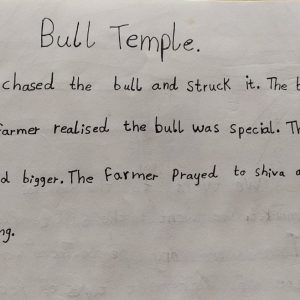 Bull Temple.
chased the bull and struck it. The
farmer realised the bull was special.
bigger. The Farmer Prayed to shiva